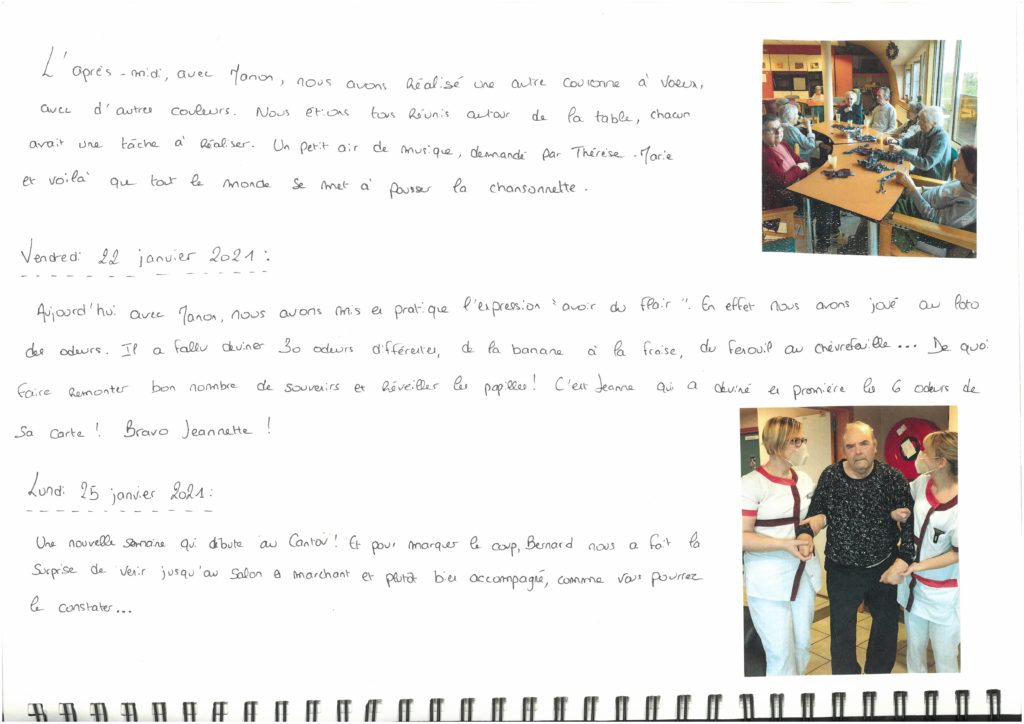 L'après-midi, avec Manon, nous avons Réalisé une autre couronne à voeux,
avec d'autres couleurs. Nous étions tous Réunis autour de la table, chacun
avait une tâche à Réaliser. Un petit air de musique, demandé par Thérèse-Marie
et voilà que tout le monde se met à pousser la chansonnette.
Vendredi 22 janvier 2021 :
Aujourd'hui avec Manon, nous avons mis en pratique l'expression "avoir du flair". En effet nous avons joué au loto
des odeurs. Il a fallu deviner 30 odeurs différentes, de la banane à la fraise, du fenouil au chèvrefeuille... De quoi
faire remonter bon nombre de souvenirs et Réveiller les papilles! C'est Jeanne qui a deviné en première les 6 odeurs de
sa carte! Bravo Jeannette!
Lundi 25 janvier 2021 :
Une nouvelle semaine qui débute au Cantou! Et pour marquer le coup, Bernard nous a fait la
surprise de venir jusqu'au salon en marchant et plutôt bien accompagné, comme vous pourrez
le constater...